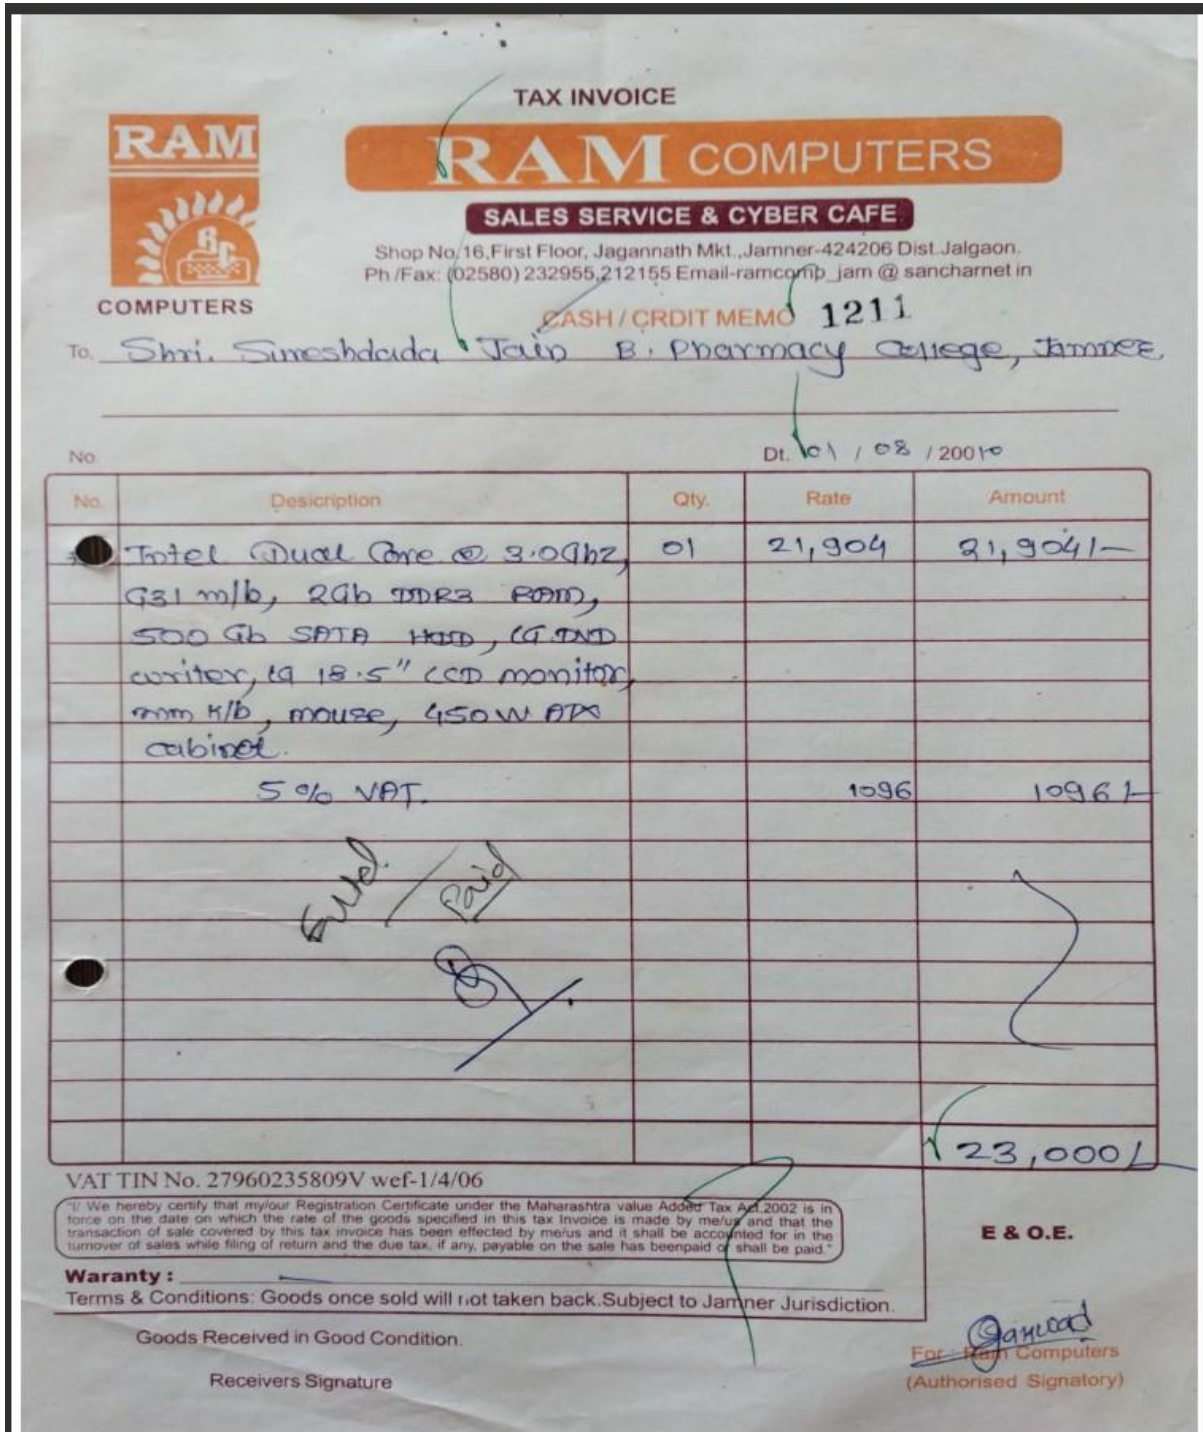 TAX INVOICE
RAM
COMPUTERS
RAM COMPUTERS
SALES SERVICE & CYBER CAFE
Shop No.16,First Floor, Jagannath Mkt.,Jamner-424206 Dist.Jalgaon.
Ph /Fax: (02580) 232955,212155 Email-ramcomp_jam @ sancharnet in
CASH / CRDIT MEMO 1211
To. Shri. Sureshdada Jain B. Pharmacy College, Jamner
No. Dt. 01 / 08 / 20010
No. Desicription Qty. Rate Amount
Intel Dual Core @ 3.0Ghz, 01 21,904 21,904/-
G31 m/b, 2Gb DDR3 RAM,
500 Gb SATA HDD, LG DVD
writer, LG 18.5" LCD monitor,
mm K/b, mouse, 450W ATX
cabinet.
5% VAT. 1096 1096/-
Paid
23,000/-
VAT TIN No. 27960235809V wef-1/4/06
"I/ We hereby certify that my/our Registration Certificate under the Maharashtra value Added Tax Act.2002 is in
force on the date on which the rate of the goods specified in this tax Invoice is made by me/us and that the
transaction of sale covered by this tax invoice has been effected by me/us and it shall be accounted for in the
turnover of sales while filing of return and the due tax, if any, payable on the sale has beenpaid or shall be paid."
E & O.E.
Waranty :
Terms & Conditions: Goods once sold will not taken back.Subject to Jamner Jurisdiction.
Goods Received in Good Condition.
Receivers Signature
For : Ram Computers
(Authorised Signatory)